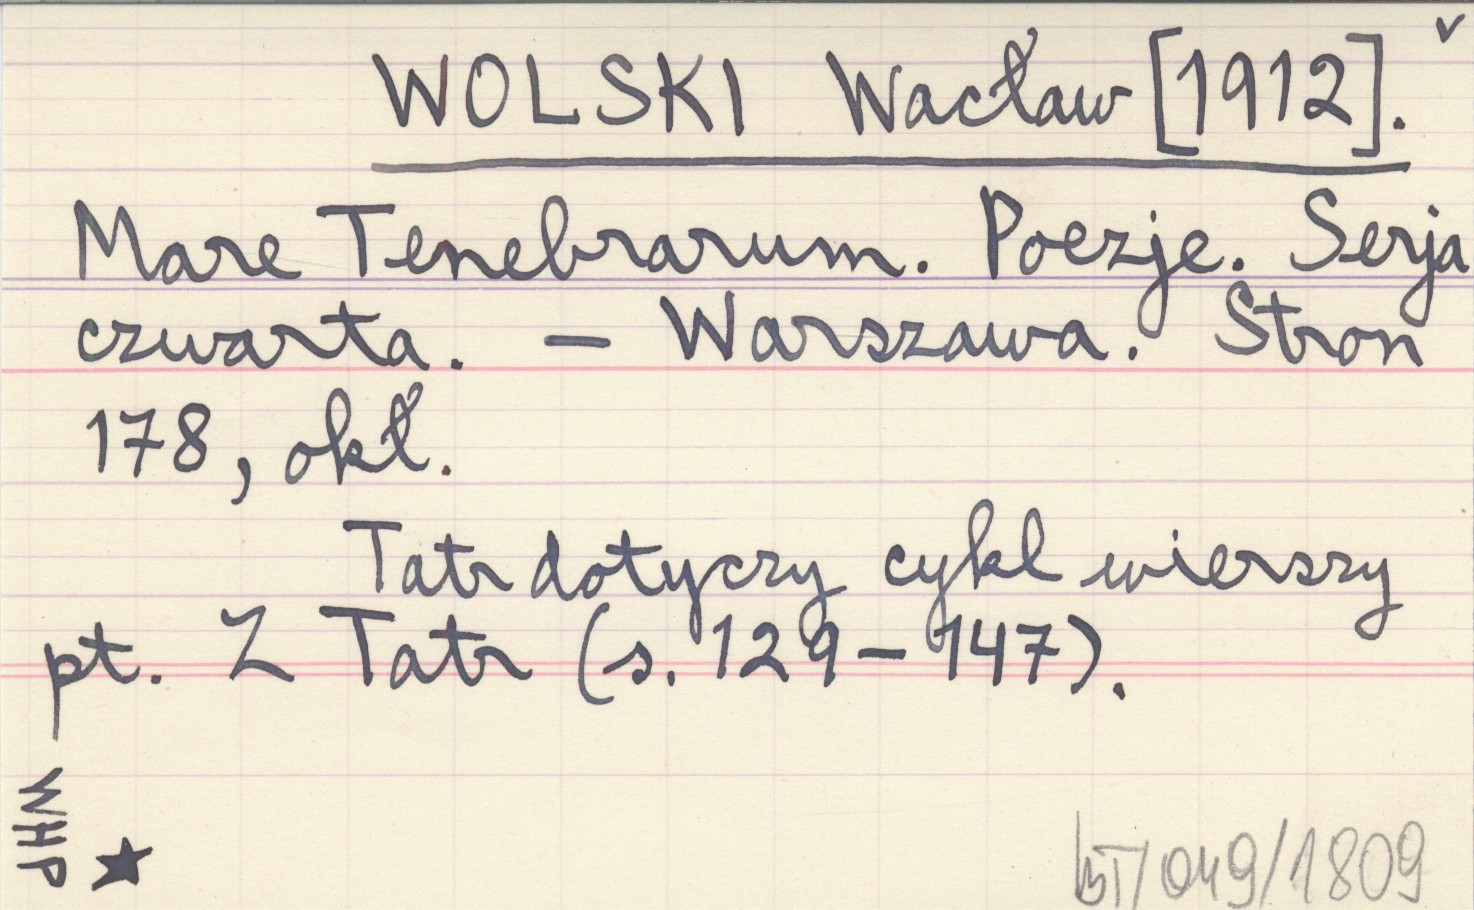 WOLSKI Wacław [1912]. v
Mare Tenebrarum. Poezje. Serja
czwarta. — Warszawa. Stron
178, okł.
Tatr dotyczy cykl wierszy
pt. Z Tatr (s. 129–147).
WHP ★
BT/049/1809